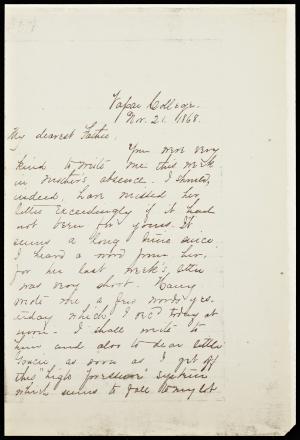 Vassar College.
Nov. 21. 1868.
My dearest Father,
You were very
kind to write me this week
in mother's absence. I should,
indeed, have missed her
letter exceedingly if it had
not been for yours. It
seems a long time since
I heard a word from her,
for her last week's letter
was very short. Harry
wrote me a few words yes-
terday which I rec'd today at
noon. I shall write to
him and also to dear little
as soon as I get off
this "high pressure" system
which seems to fall to my lot